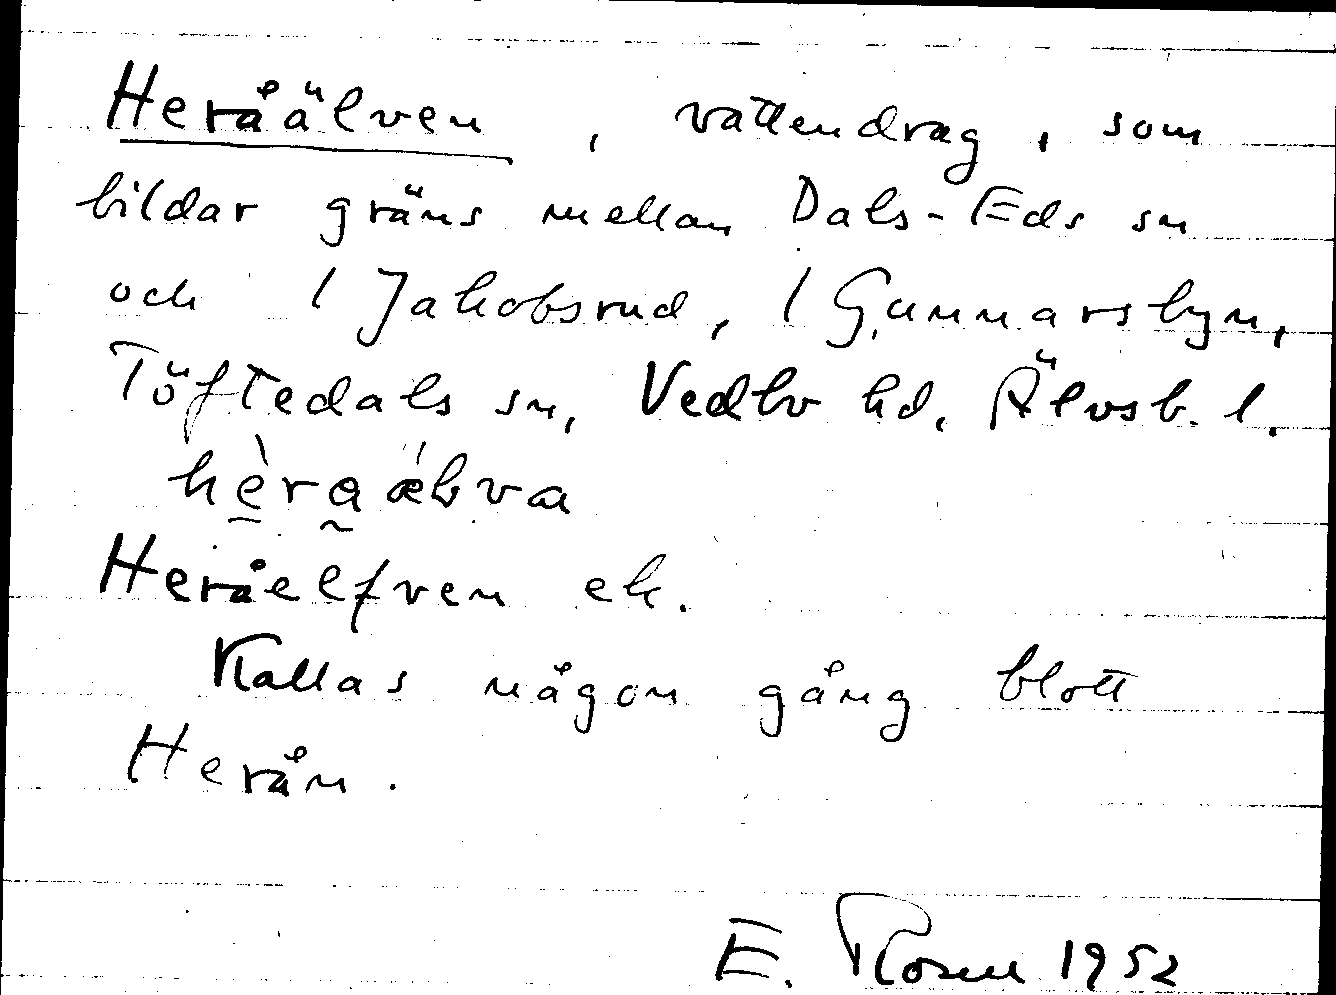 Heråälven, vattendrag, som
bildar gräns mellan Dals-Eds sn
och 1 Jakobsrud, 1 Gunnarsbyn,
Töftedals sn, Vedbo hd, Älvsb. l.
hèra ælva
Heråelfven ek.
Kallas någon gång blott
Herån.
E. Rosen 1952